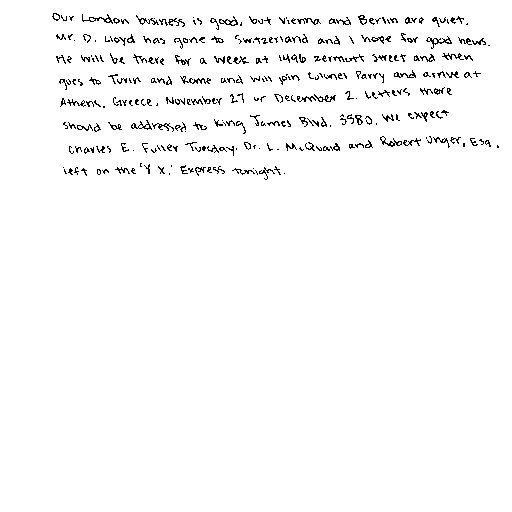 Our London business is good, but Vienna and Berlin are quiet.
Mr. D. Lloyd has gone to Switzerland and I hope for good news.
He will be there for a week at 1496 Zermott Street and then
goes to Turin and Rome and will join Colonel Parry and arrive at
Athens, Greece, November 27 or December 2. Letters there
should be addressed to King James Blvd. 3580. We expect
Charles E. Fuller Tuesday. Dr. L. McQuaid and Robert Unger, Esq.,
left on the 'Y X.' Express tonight.